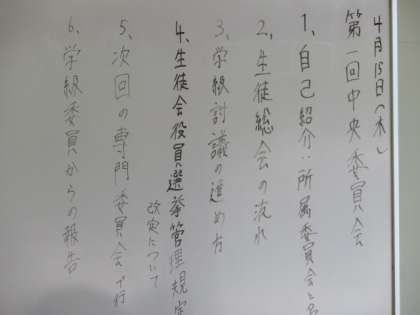 4月15日(木)
第一回中央委員会
1、自己紹介:所属委員会と名
2、生徒総会の流れ
3、学級討議の進め方
4、生徒会役員選挙管理規定
改定について
5、次回の専門委員会で行
6、学級委員からの報告